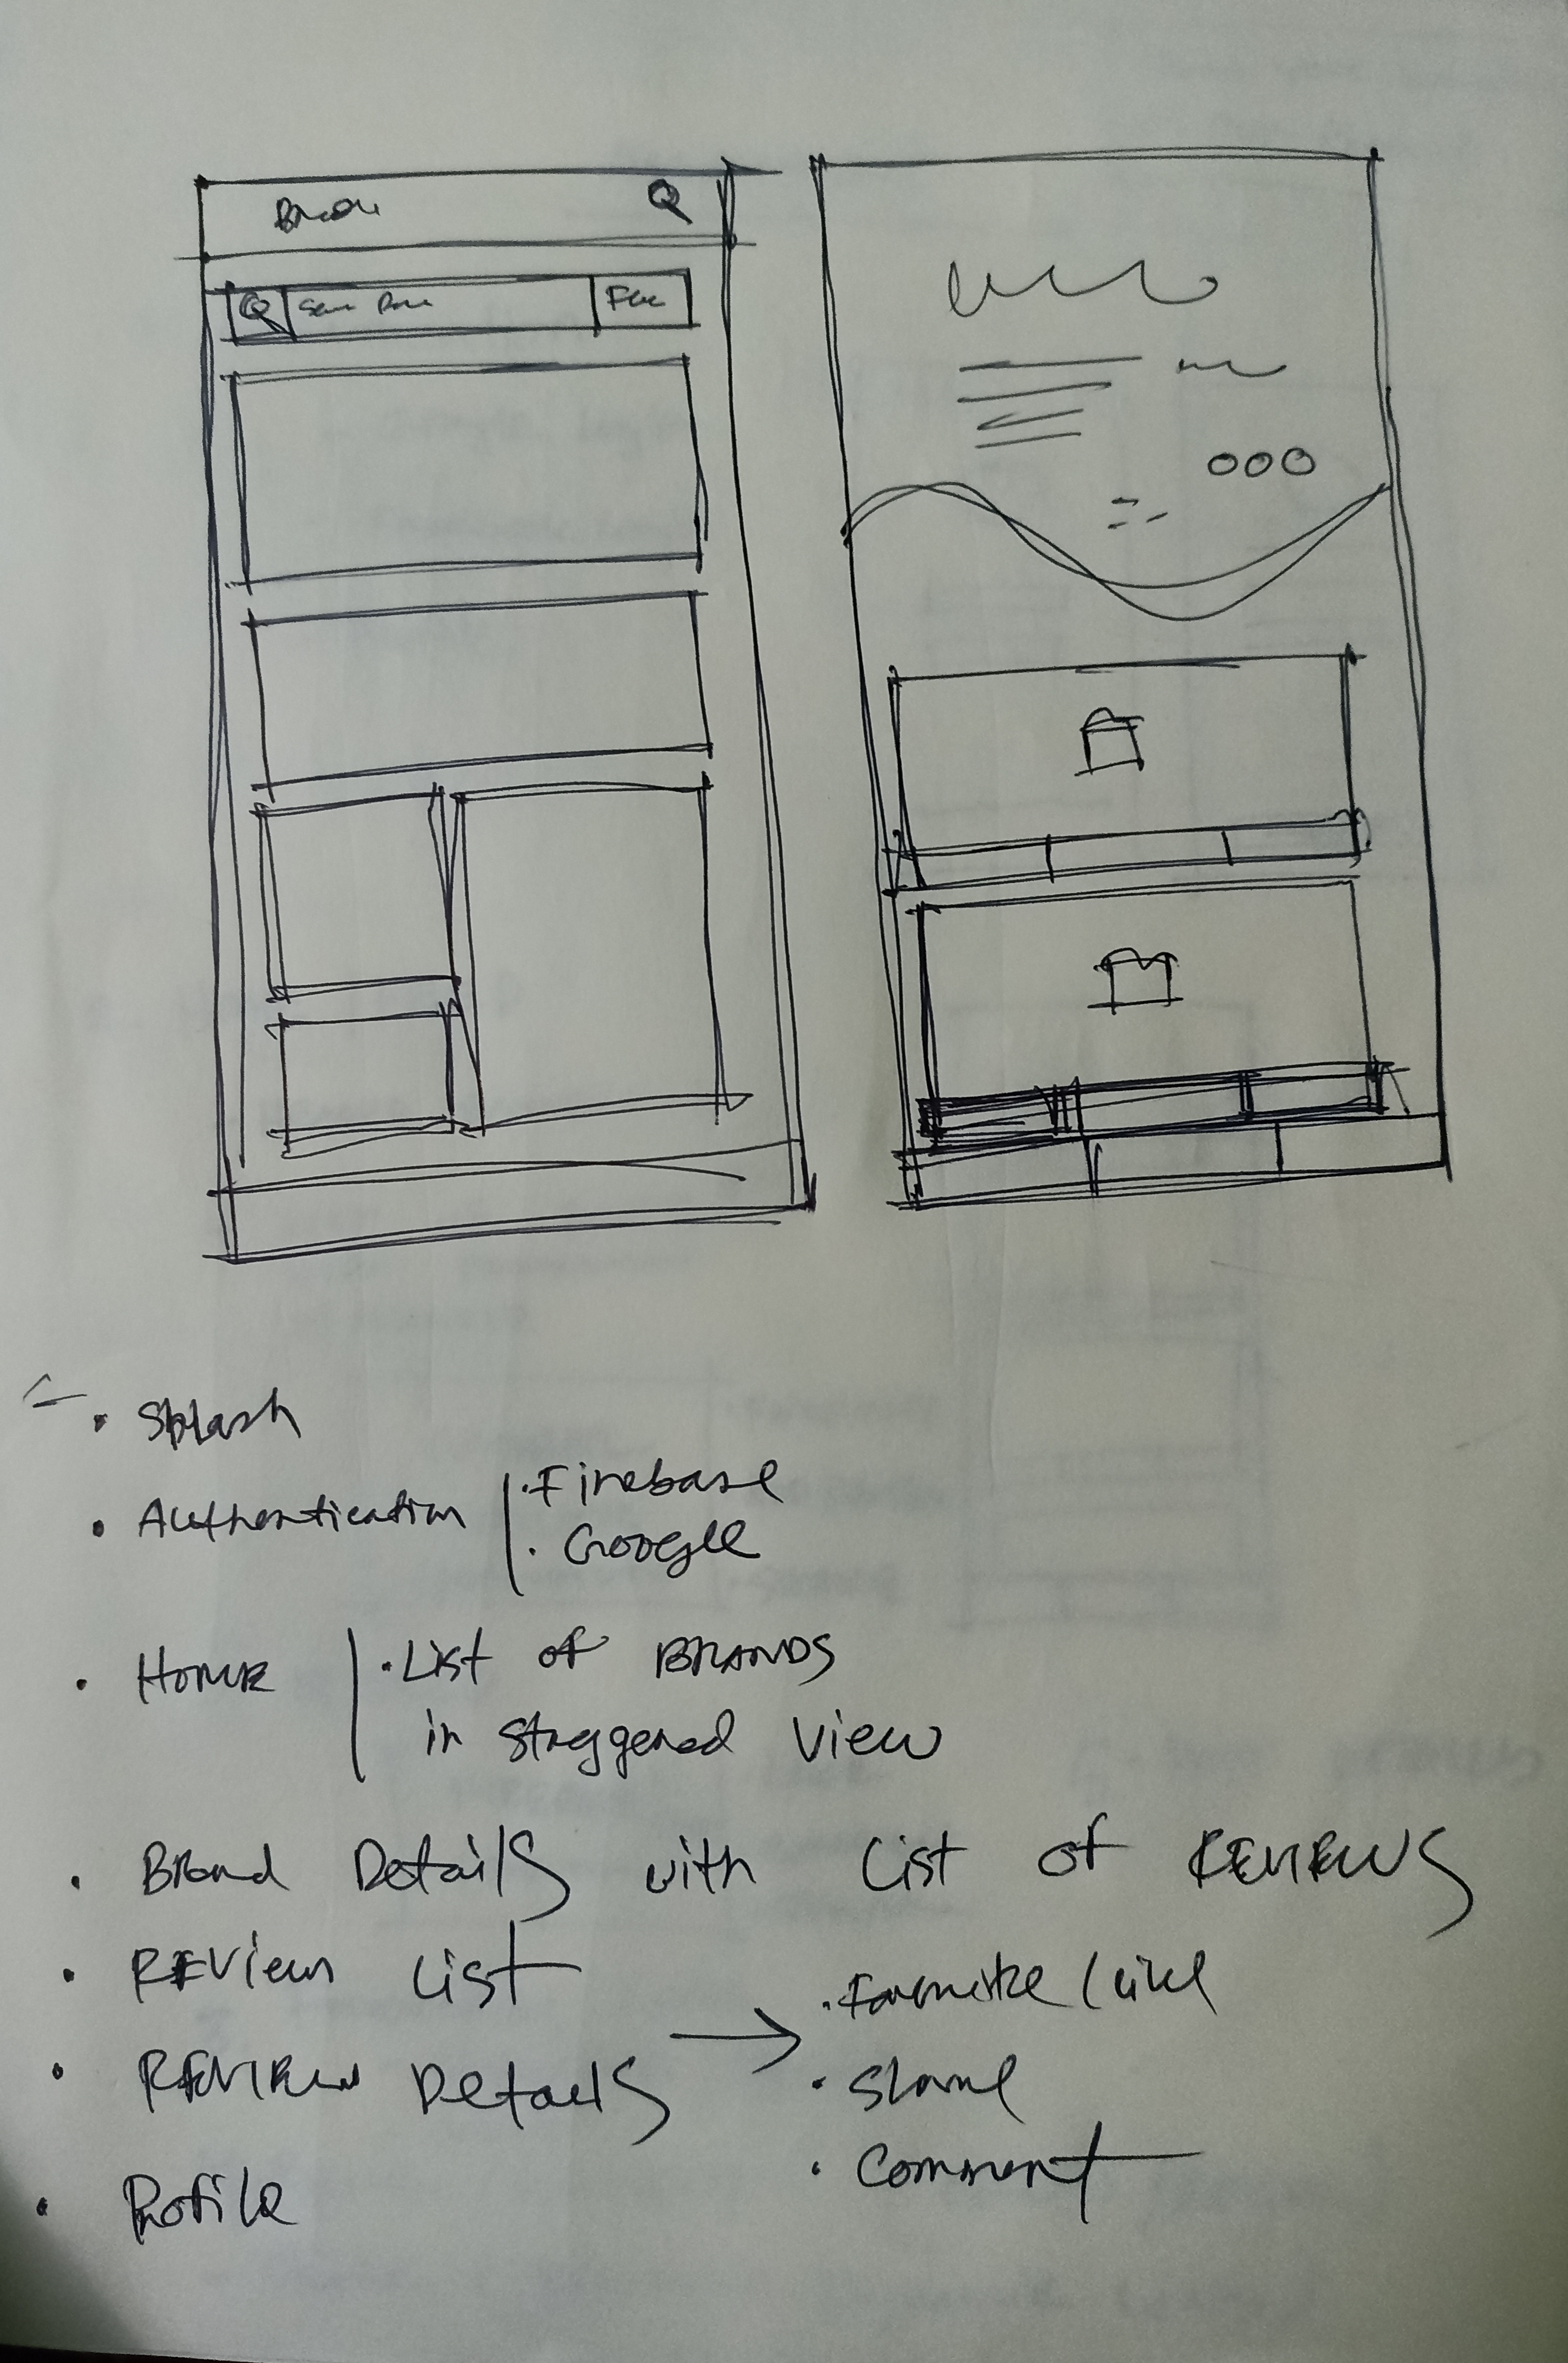 Splash
Authentication
Firebase
Google
Home
List of BRANDS
in staggered view
Brand Details with List of REVIEWS
REVIEW List
REVIEW Details
Favourite / Like
Share
Comment
Profile